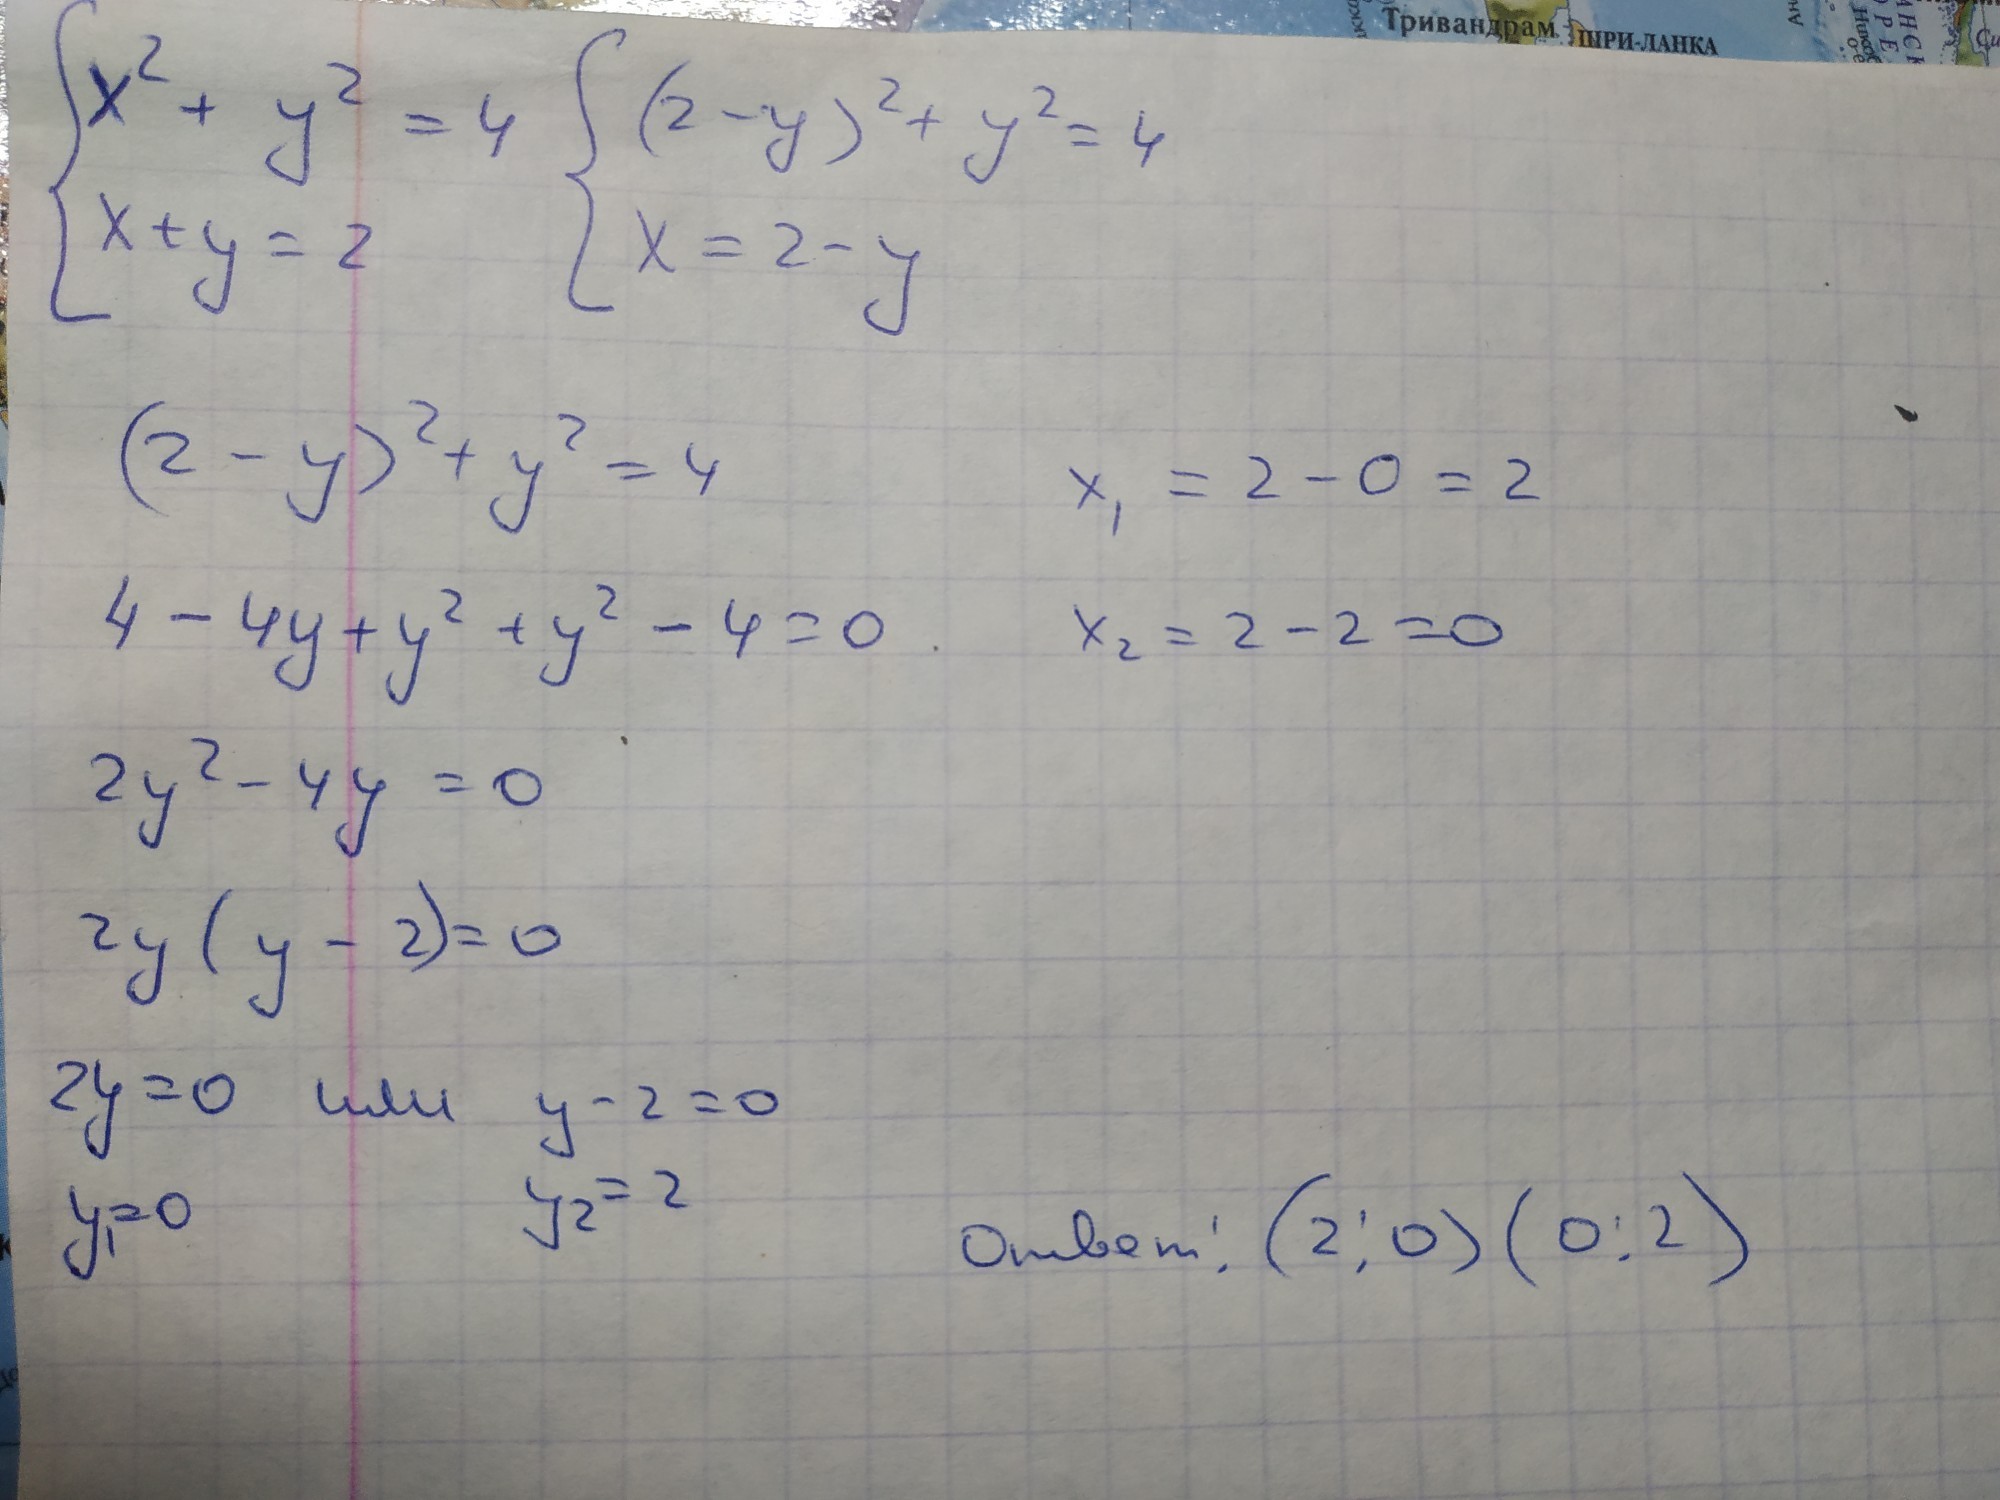 Тривандрам ШРИ-ЛАНКА
x² + y² = 4 (2 - y)² + y² = 4
x + y = 2 x = 2 - y
(2 - y)² + y² = 4
4 - 4y + y² + y² - 4 = 0
2y² - 4y = 0
2y(y - 2) = 0
2y = 0 или y - 2 = 0
y₁ = 0 y₂ = 2
x₁ = 2 - 0 = 2
x₂ = 2 - 2 = 0
Ответ: (2; 0) (0; 2)